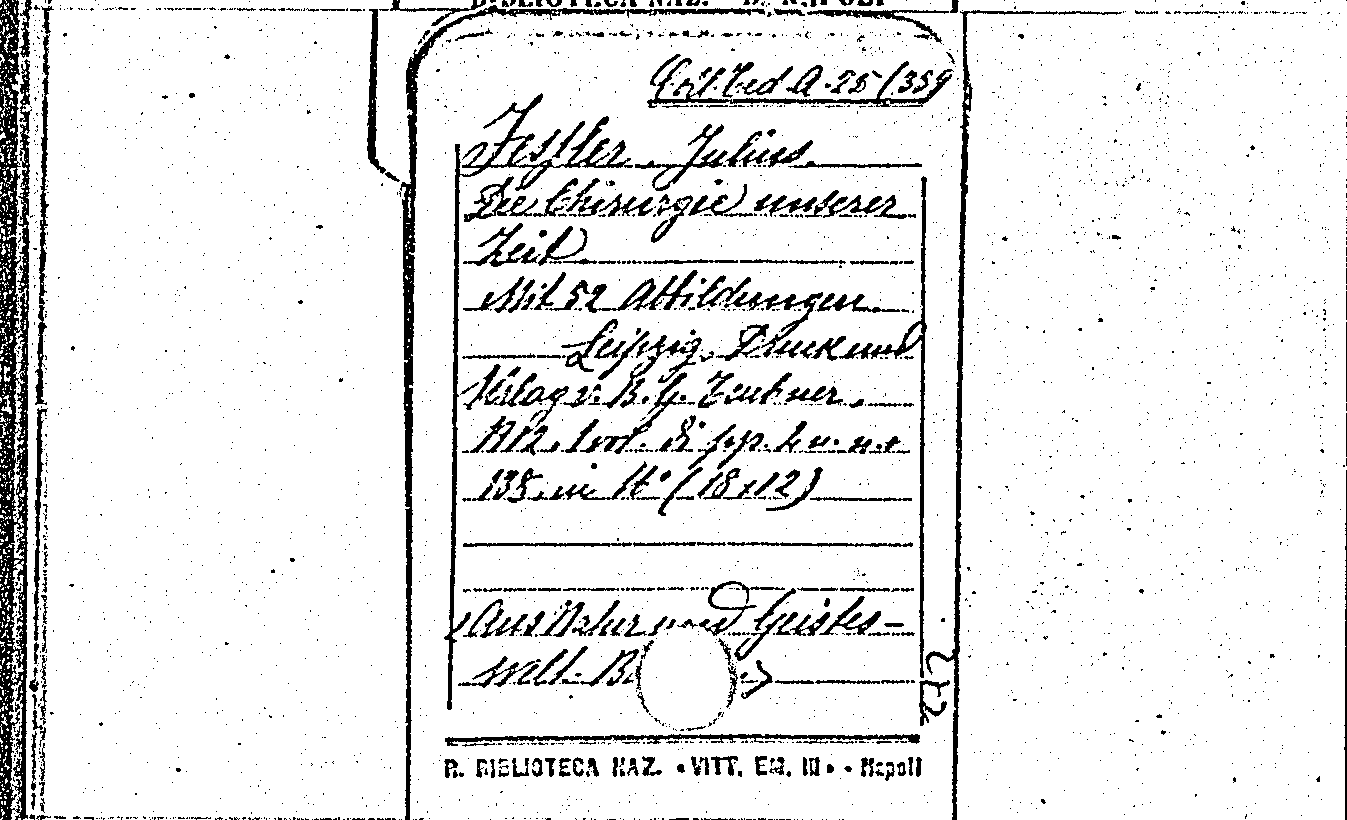 BIBLIOTECA NAZ.
Coll. Ted. A. 25 (359
Fessler, Julius.
Die Chirurgie unserer
Zeit
Mit 52 Abbildungen.
Leipzig, Druck und
Verlag v. B. G. Teubner.
1912, 1 vol. di pp. 4 n. n. +
138, in 16° (18x12)
<Aus Natur und Geistes-
welt. B
>
R. BIBLIOTECA NAZ. "VITT. EM. III" - Napoli